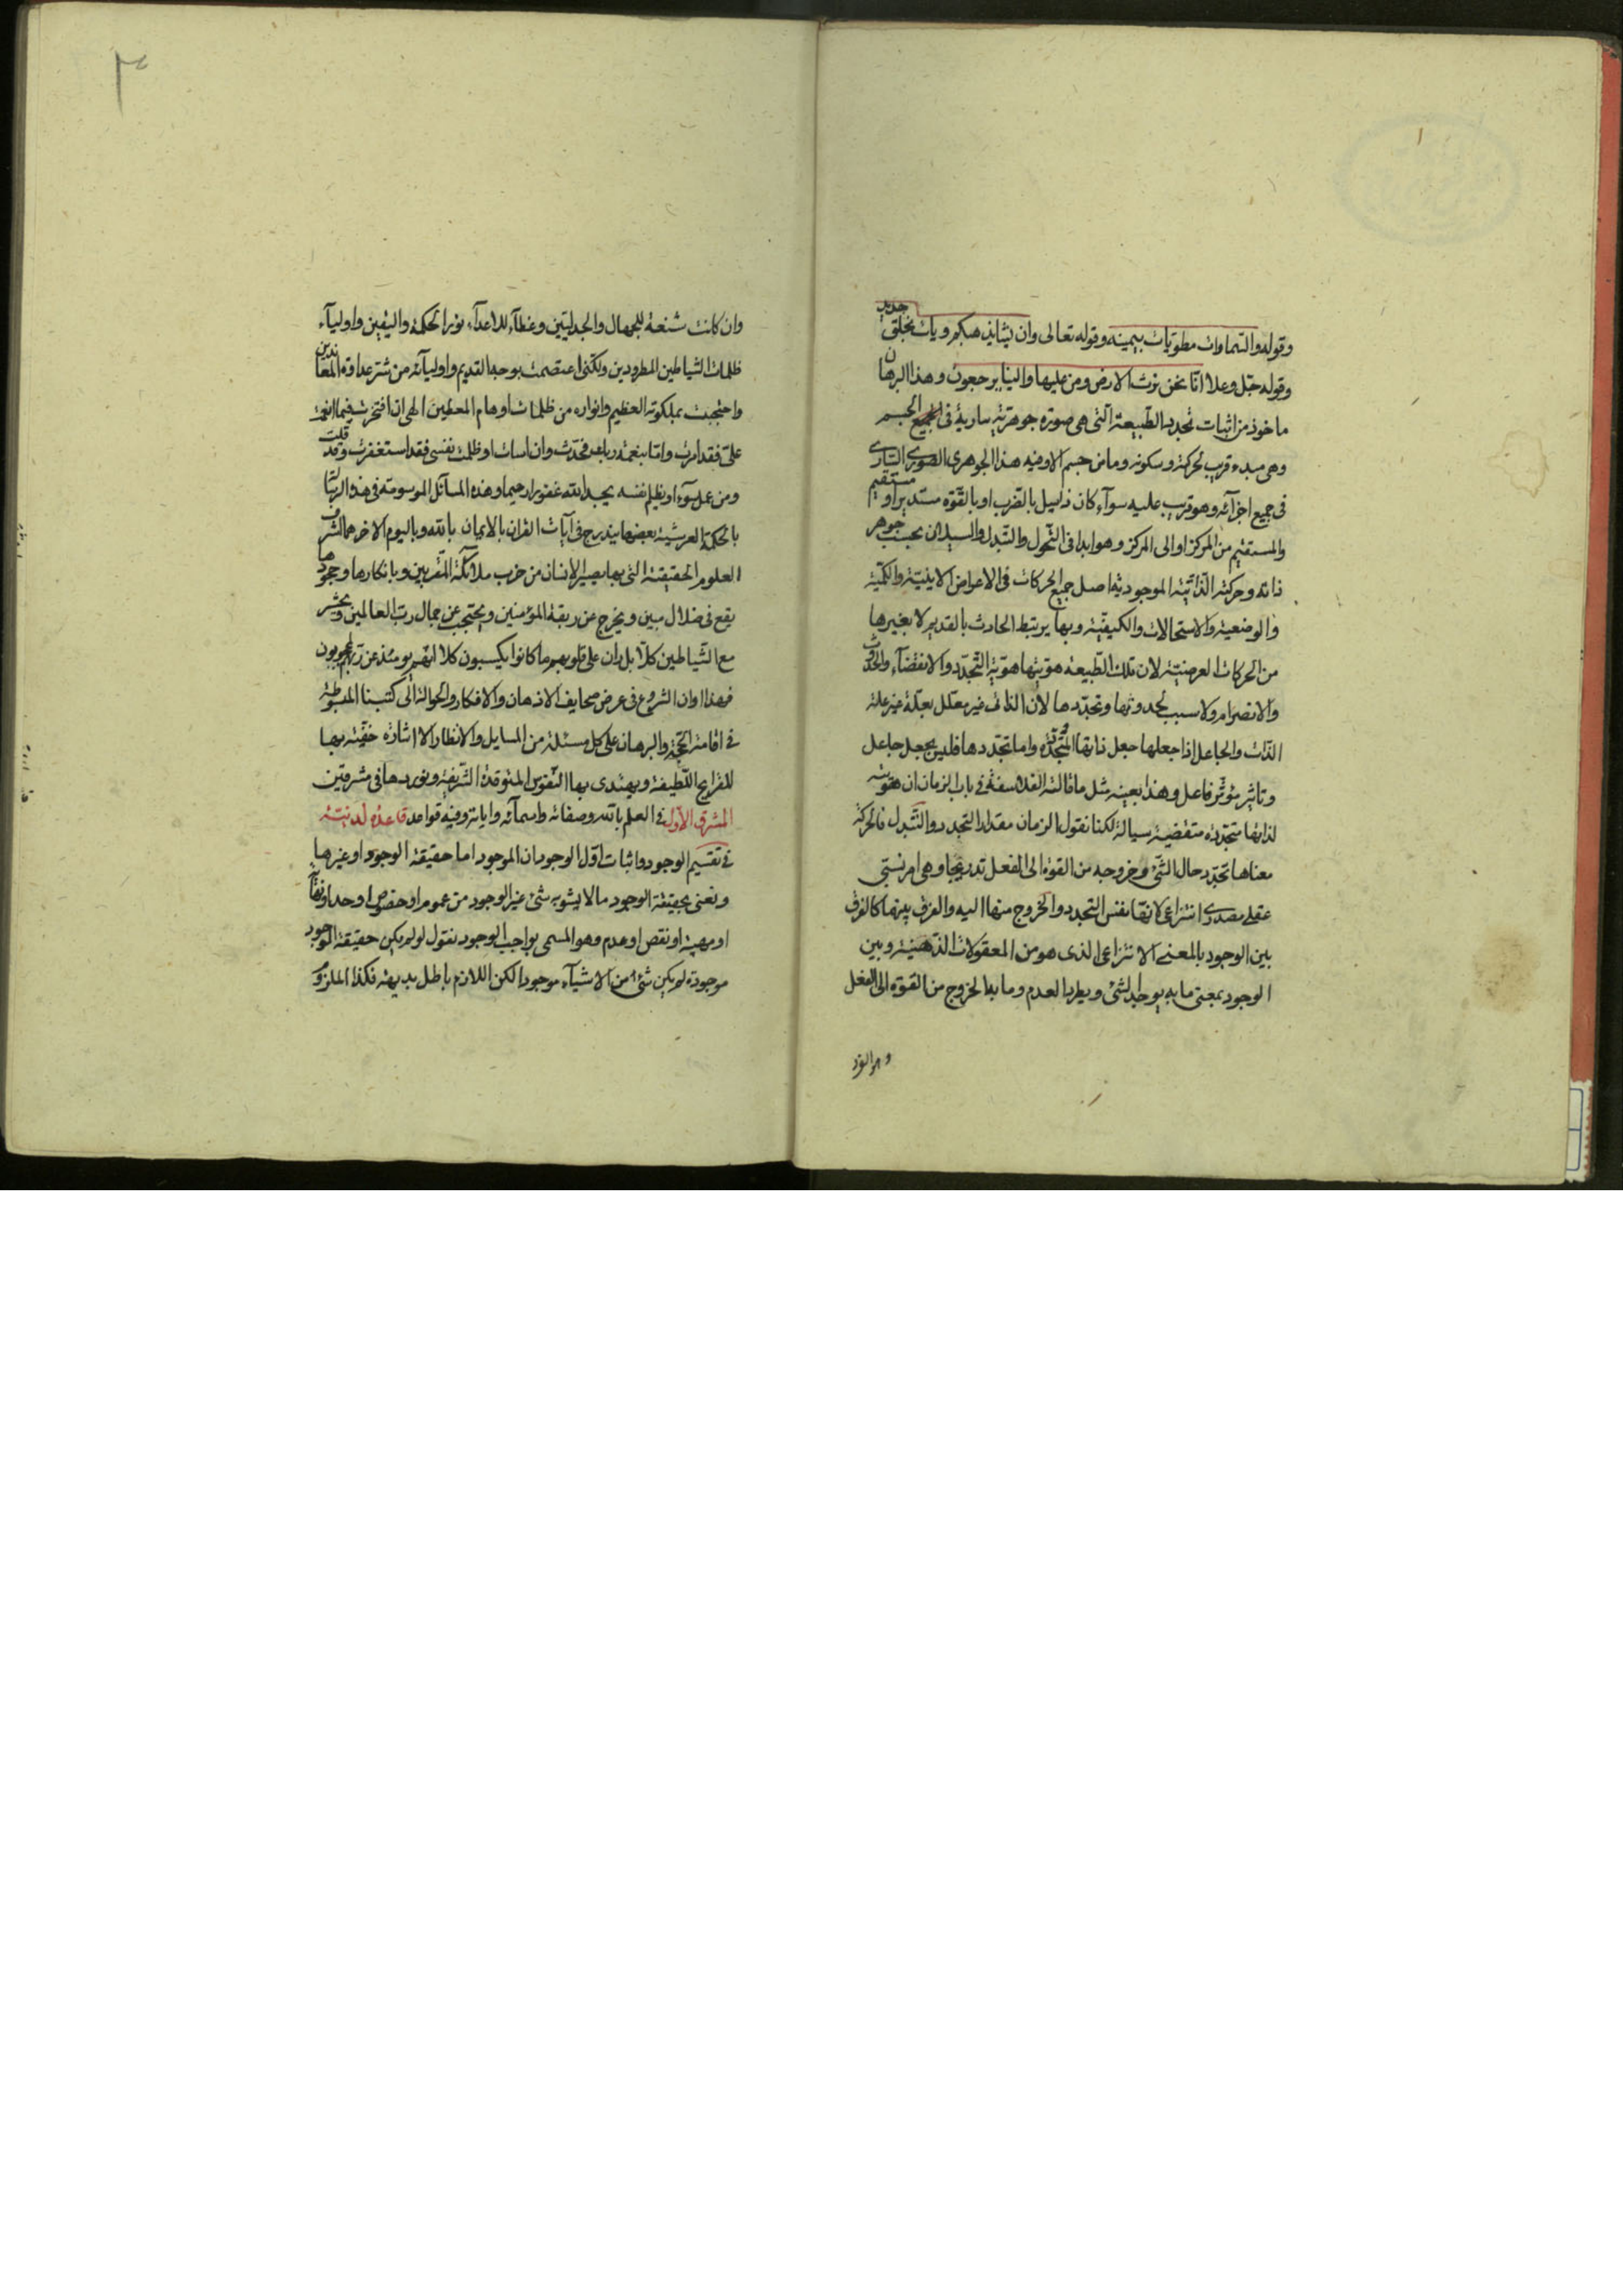 وقوله والسماوات مطويات بيمينه وقوله تعالى وان يشا يذهبكم ويات بخلق جديد
وقوله جل وعلا انا نحن نرث الارض ومن عليها والينا يرجعون وهذا البرهان
ماخوذ من اثبات تجدد الطبيعة التى هى صورة جوهرية سارية فى الجسم
وهى مبدء قريب لحركته وسكونه وما من جسم الا وفيه هذا الجوهرى الصورى السارى
فى جميع اجزآئه وهو قريب عليه سوآء كان ذا ميل بالضرب او بالقوة مستدير او مستقيم
والمستقيم من المركز او الى المركز وهو ابدا فى التحول والتبدل والسيلان بحسب جوهر
ذاته وحركته الذاتية الموجودية اصل جميع الحركات فى الاعراض الاينية والكمية
والوضعية والاستحالات والكيفية وبها يرتبط الحادث بالقديم لا بغيرها
من الحركات العرضية لان تلك الطبيعة هويتها هوية التجدد والانقضآء والحدوث
والانصرام ولا سبب لحدوثها وتجددها لان الذاتى غير معلل بعلة غير علة
الذات والجاعل اذا جعلها جعل ذاتها المتجددة واما تجددها فليس بجعل جاعل
وتاثير مؤثر فاعل وهذا بعينه مثل ما قالته الفلاسفة فى باب الزمان ان هويته
لذاتها متجددة متقضية سيالة لكنا نقول الزمان مقدار التجدد والتبدل فالحركة
معناها تجدد حال الشئ وخروجه من القوة الى الفعل تدريجا وهى امر نسبتى
عقلى مصدرى انتزاعى لانها نفس التجدد والخروج منها اليه والفرق بينهما كالفرق
بين الوجود بالمعنى الانتزاعى الذى هو من المعقولات الذهنية وبين
الوجود بمعنى ما به يوجد الشئ ويطرد العدم وما به الخروج من القوة الى الفعل
٣
وان كانت شنعة للجهال والجدليين وغطآء للاعدآء نور الحكمة واليقين واوليآء
ظلمات الشياطين المطرودين ولكنى اعتصمت بوجه القديم واوليآئه من شر عداوة المعاندين
واحتجبت بملكوته العظيم وانواره من ظلمات اوهام المعطلين الهى ان افتخرت فيما انعمت
على فقد امرت واما بنعمة ربك فحدث وان اسات او ظلمت نفسى فقد استغفرت وقد قلت
ومن عمل سوء او يظلم نفسه يجد الله غفورا رحيما وهذه المسآئل الموسومة فى هذه الرسالة
بالحكمة العرشية بعضها يندرج فى آيات القران بالايمان بالله وباليوم الاخر هما اشرف
العلوم الحقيقية التى بها يصير الانسان من حزب ملائكة المقربين وبانكارها وجحودها
يقع فى ضلال مبين ويخرج عن ربقة المؤمنين ويحتجب عن جمال رب العالمين ويحشر
مع الشياطين كلا بل ران على قلوبهم ما كانوا يكسبون كلا انهم يومئذ عن ربهم لمحجوبون
فهذا اوان الشروع فى عرض صحايف الاذهان والافكار والحوالة الى كتبنا المبسوطة
فى اقامة الحجة والبرهان على كل مسئلة من المسايل والانظار الا اشارة خفية بها
للقرايح اللطيفة ويهتدى بها النفوس المتوقدة الشريفة ونوردها فى مشرقين
المشرق الاول فى العلم بالله وصفاته واسمآئه واياته وفيه قواعد قاعدة لدنية
فى تقسيم الوجود واثبات اول الوجود ان الموجود اما حقيقة الوجود او غيرها
ونعنى بحقيقة الوجود ما لا يشوبه شئ غير الوجود من عموم او خصوص او حد او نهاية
او مهية او نقص او عدم وهو المسمى بواجب الوجود نقول لو لم يكن حقيقة الوجود
موجودة لم يكن شئ من الاشيآء موجودا لكن اللازم باطل بديهة فكذا الملزوم